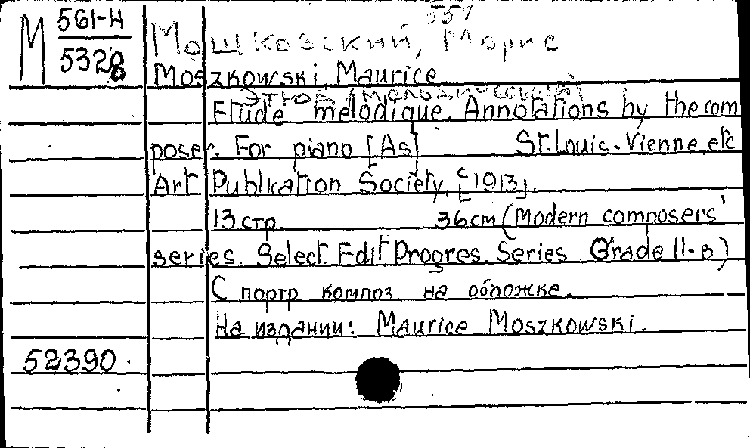 557
М 561-Н
5328
Мошковский, Морис
Moszkowski, Maurice
Этюд (мелодический)
Etude melodique. Annotations by the com
poser. For piano [As] St. Louis. Vienne, etc
Art Publication Society, [c1913].
13 стр. 36 см (Modern composers'
series. Select. Edit Progres. Series Grade II-B)
С портр композ на обложке.
На издании: Maurice Moszkowski.
52390.